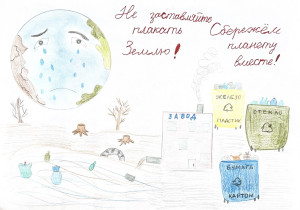 Не заставляйте
плакать
Землю!
Сбережём
планету
вместе!
ЗАВОД
ПЛАСТИК
СТЕКЛО
БУМАГА
КАРТОН